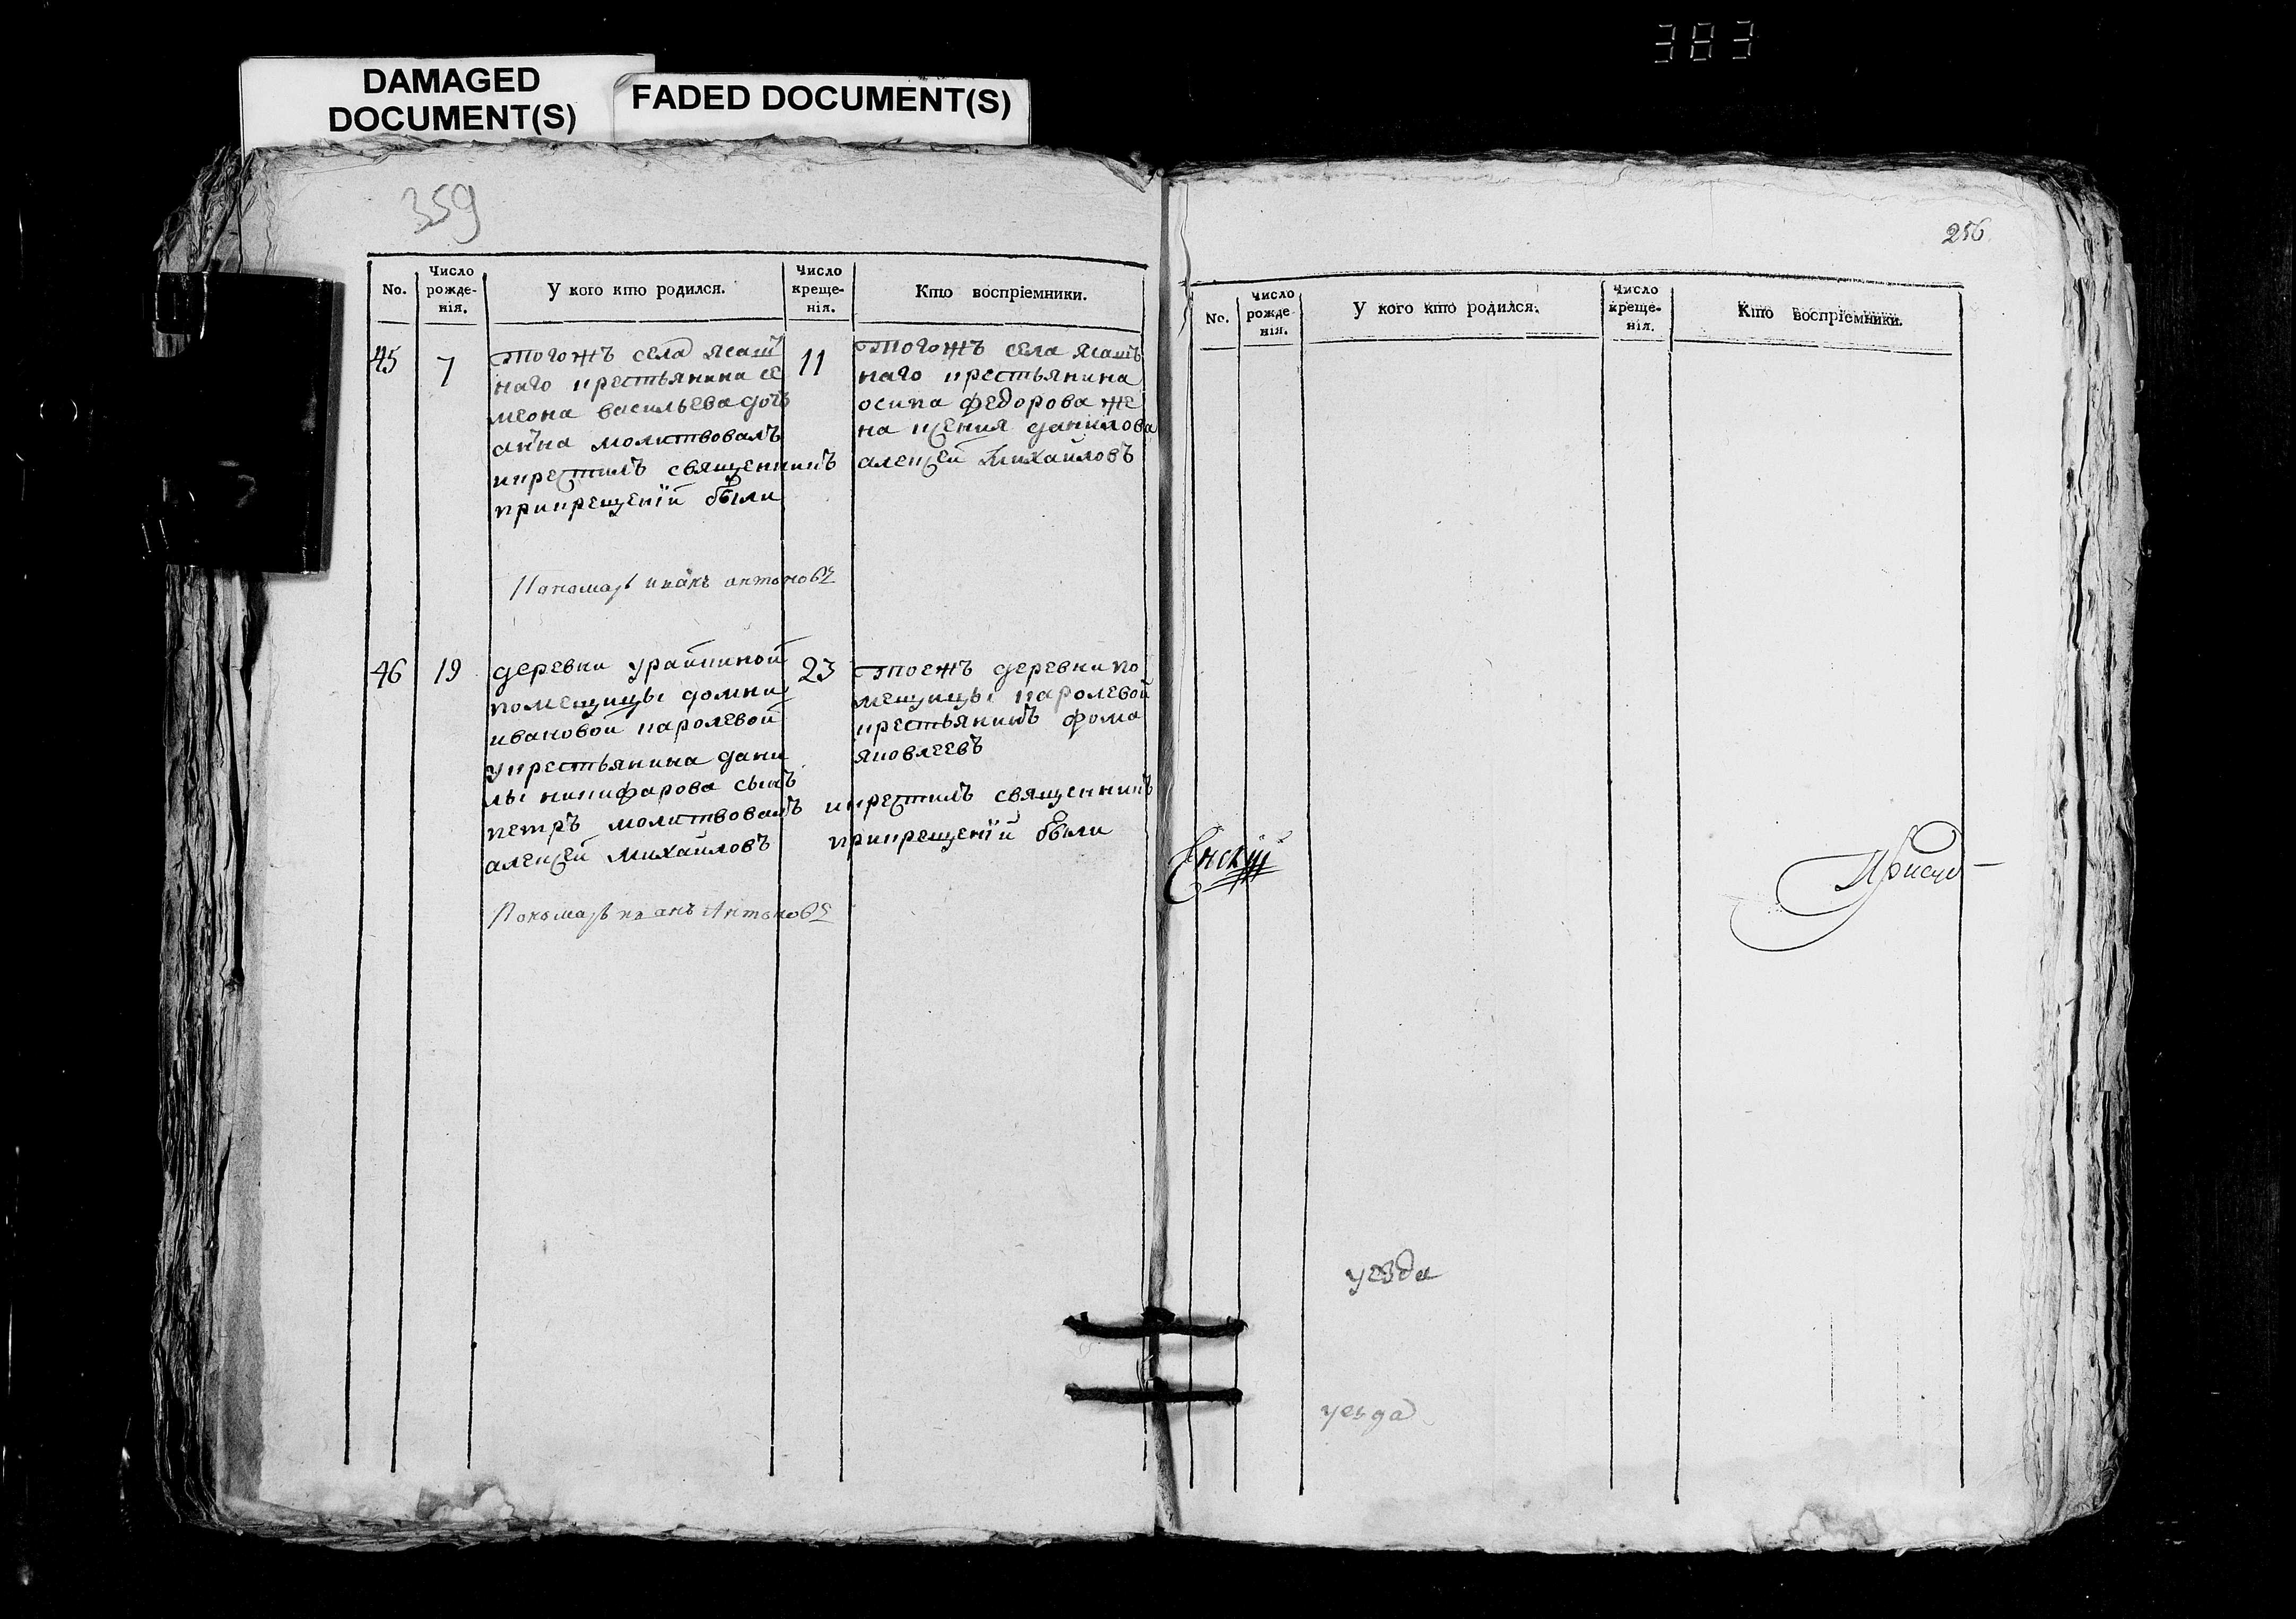 383
DAMAGED
DOCUMENT(S)
FADED DOCUMENT(S)
359
No.
Число
рожде-
нія.
У кого кто родился.
Число
креще-
нія.
Кто воспріемники.
45
7
тогожъ села ясаш
наго крестьянина се
меона васильева дочь
анна молитвовалъ
икрестилъ священникъ
прикрещенїи были
11
тогожъ села ясашъ
наго крестьянина
осипа федорова же
на данилова
алексей михайловъ
Пономарь иванъ антоновъ
46
19
деревни
помещицы домны
ивановой каролевой
укрестьянина дани
лы никифарова сынъ
петръ молитвовалъ
алексей михайловъ
23
тоежъ деревни по
мещицы каролевой
крестьянинъ фома
яковлевъ
икрестилъ священникъ
прикрещенїи были
Пономарь иванъ Антоновъ
256
No.
Число
рожде
нія.
У кого кто родился.
Число
креще-
нія.
Кто воспріемники.
уезда
уезда